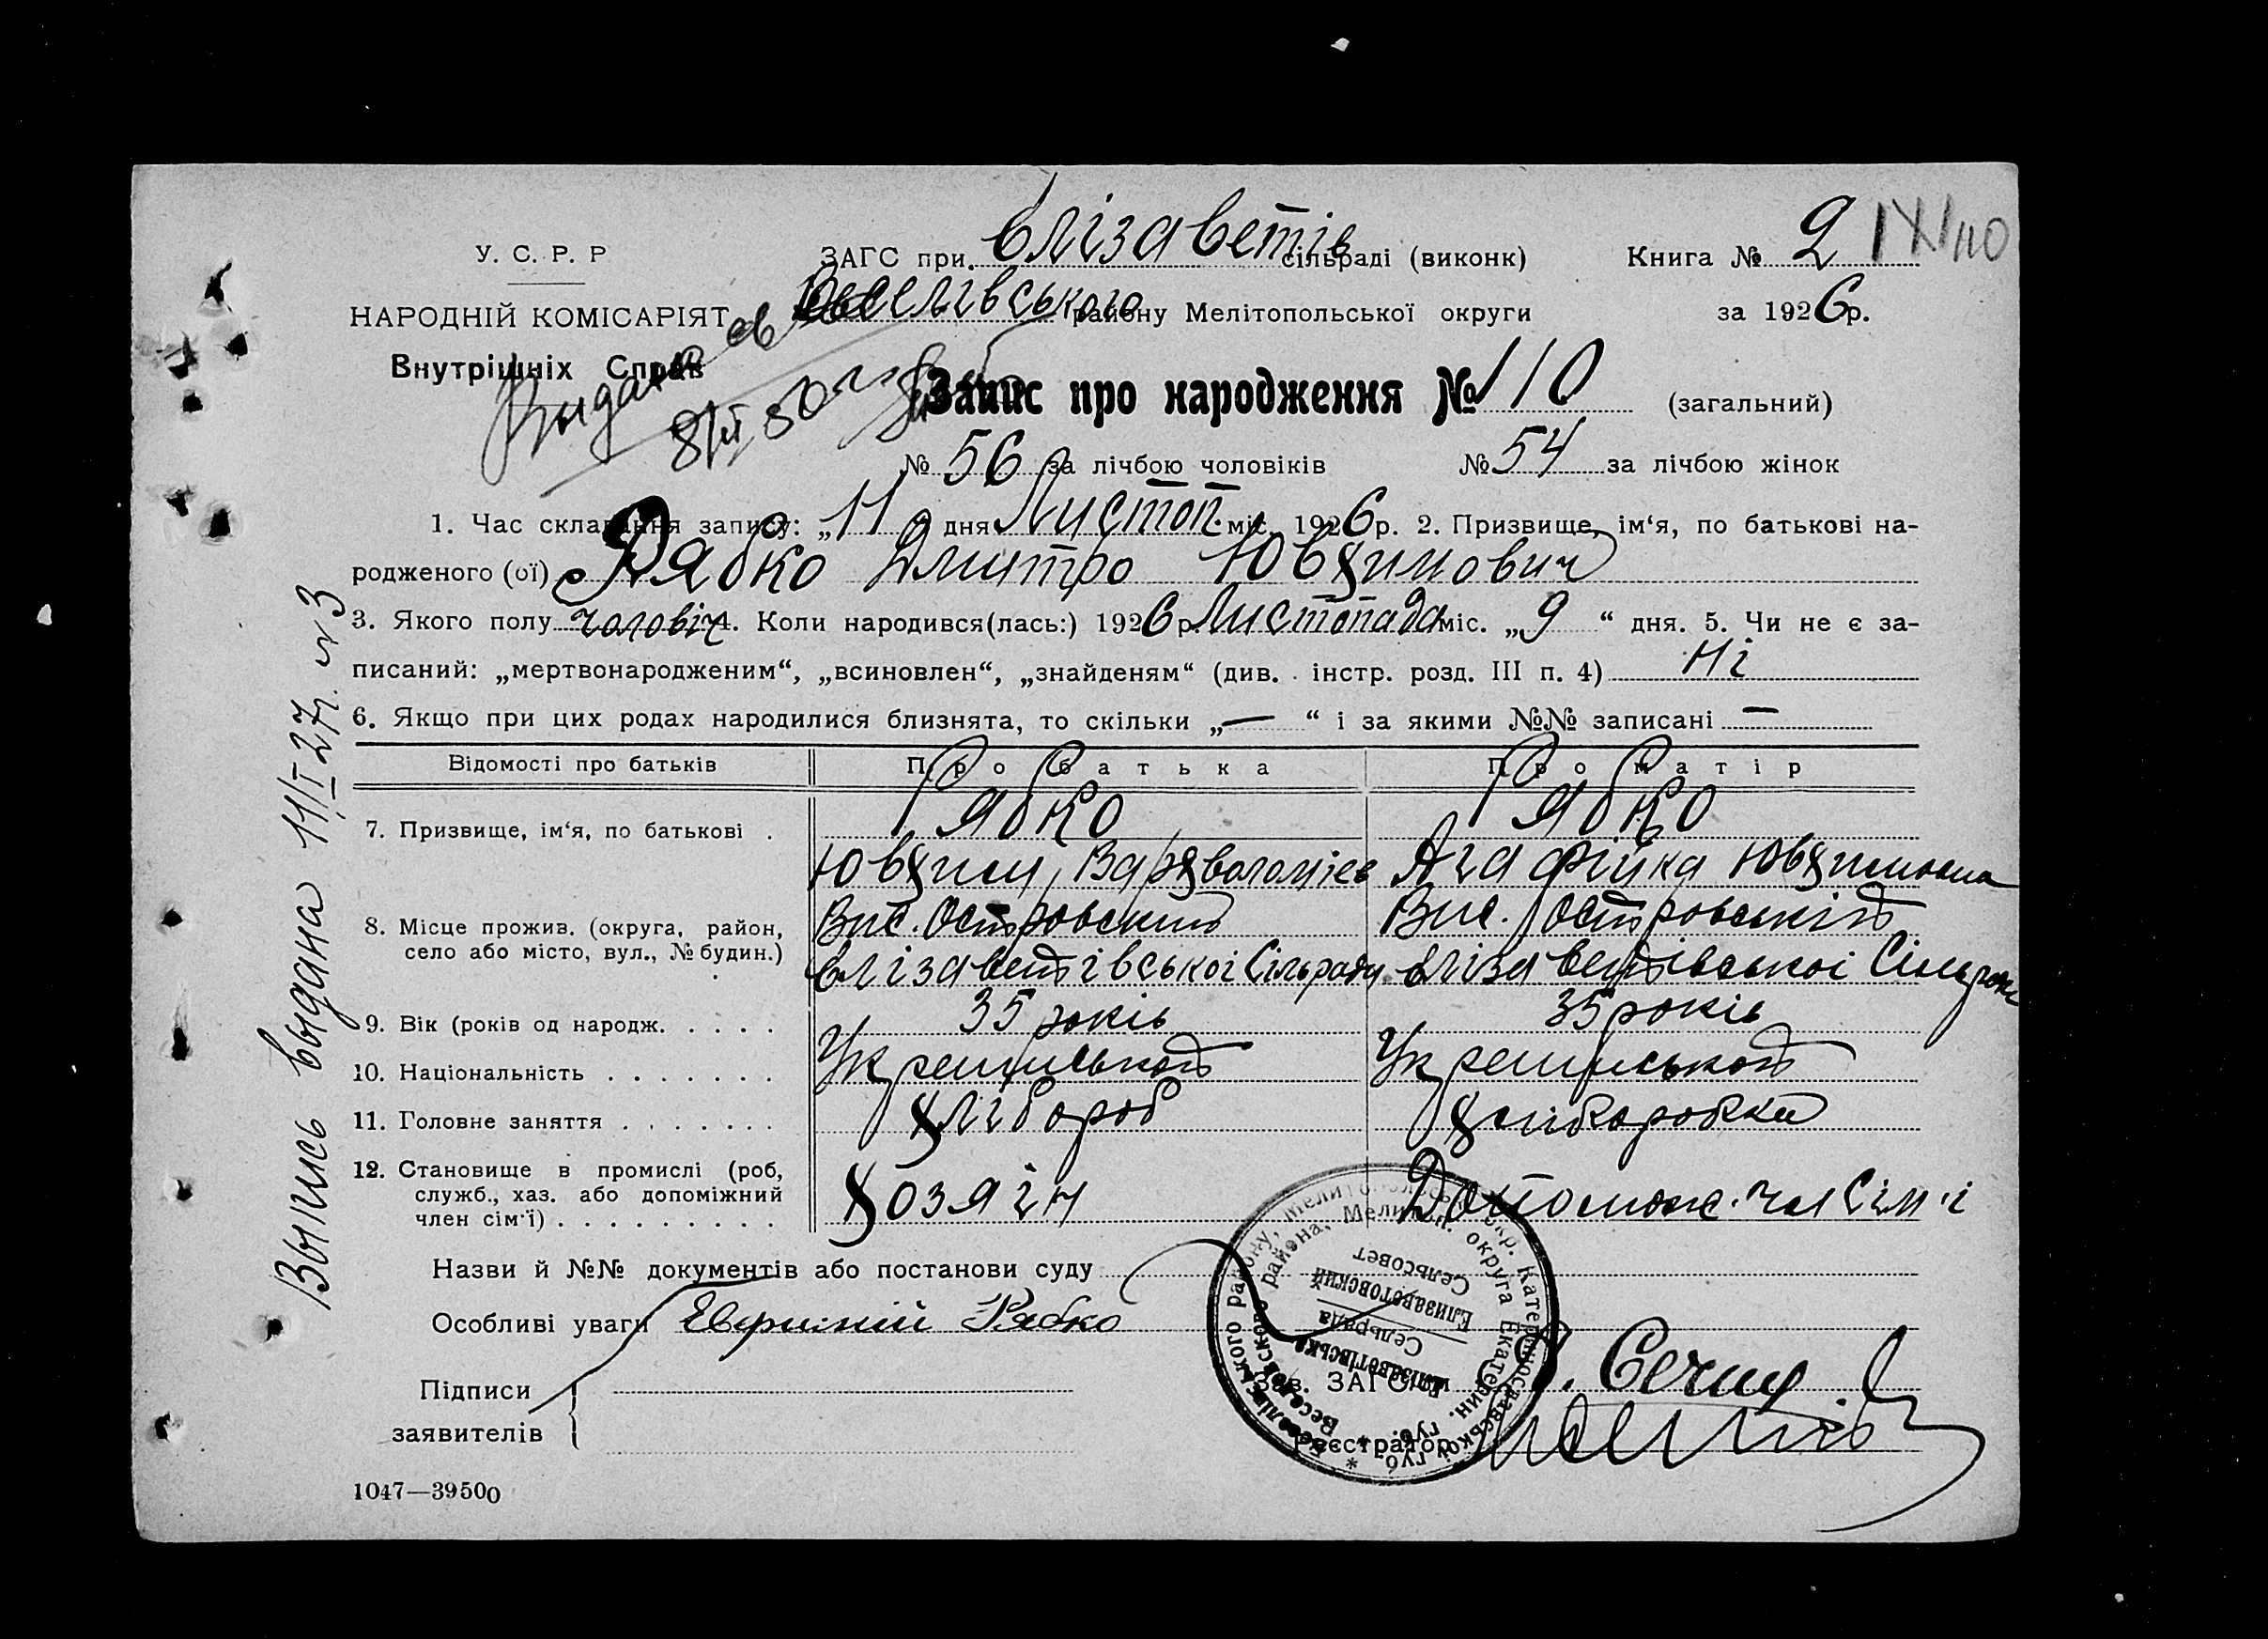 У. С. Р. Р
ЗАГС при Єлізаветів сільраді (виконк)
Книга № 2 IX/110
НАРОДНІЙ КОМІСАРІЯТ
Веселівського району Мелітопольської округи
за 1926 р.
Внутрішніх Справ
Запис про народження № 110 (загальний)
№ 56 за лічбою чоловіків № 54 за лічбою жінок
1. Час складання запису: „11" дня Листоп. міс. 1926 р. 2. Призвище, ім'я, по батькові на-
родженого (ої) Рябко Дмитро Ювхимович
3. Якого полу чоловіч 4. Коли народився(лась:) 1926 р. Листопада міс. „9" дня. 5. Чи не є за-
писаний: „мертвонародженим", „всиновлен", „знайденям" (див. інстр. розд. III п. 4) Ні
6. Якщо при цих родах народилися близнята, то скільки „—" і за якими №№ записані —
Відомості про батьків Про батька Про матір
7. Призвище, ім'я, по батькові . Рябко Рябко
Ювхим Агафійка
8. Місце прожив. (округа, район,
село або місто, вул., № будин.)
Вис. Островский Вис.
Єлізаветівської Сільради Єлізаветівської
9. Вік (років од народж. . . . . 35 років 35 років
10. Національність . . . . . . .
11. Головне заняття . . . . . . . хлібороб хліборобка
12. Становище в промислі (роб,
служб., хаз. або допоміжний
член сім'ї) . . . . . . . . . хозяїн Допомож. чл сім'ї
Назви й №№ документів або постанови суду
Особливі уваги Рябко
Підписи
заявителів
Зав. ЗАГС'ом
Реєстратор
1047—39500
Выпись выдана 11/I 27г. №3
Елизаветовский
Сельсовет
Сельрада